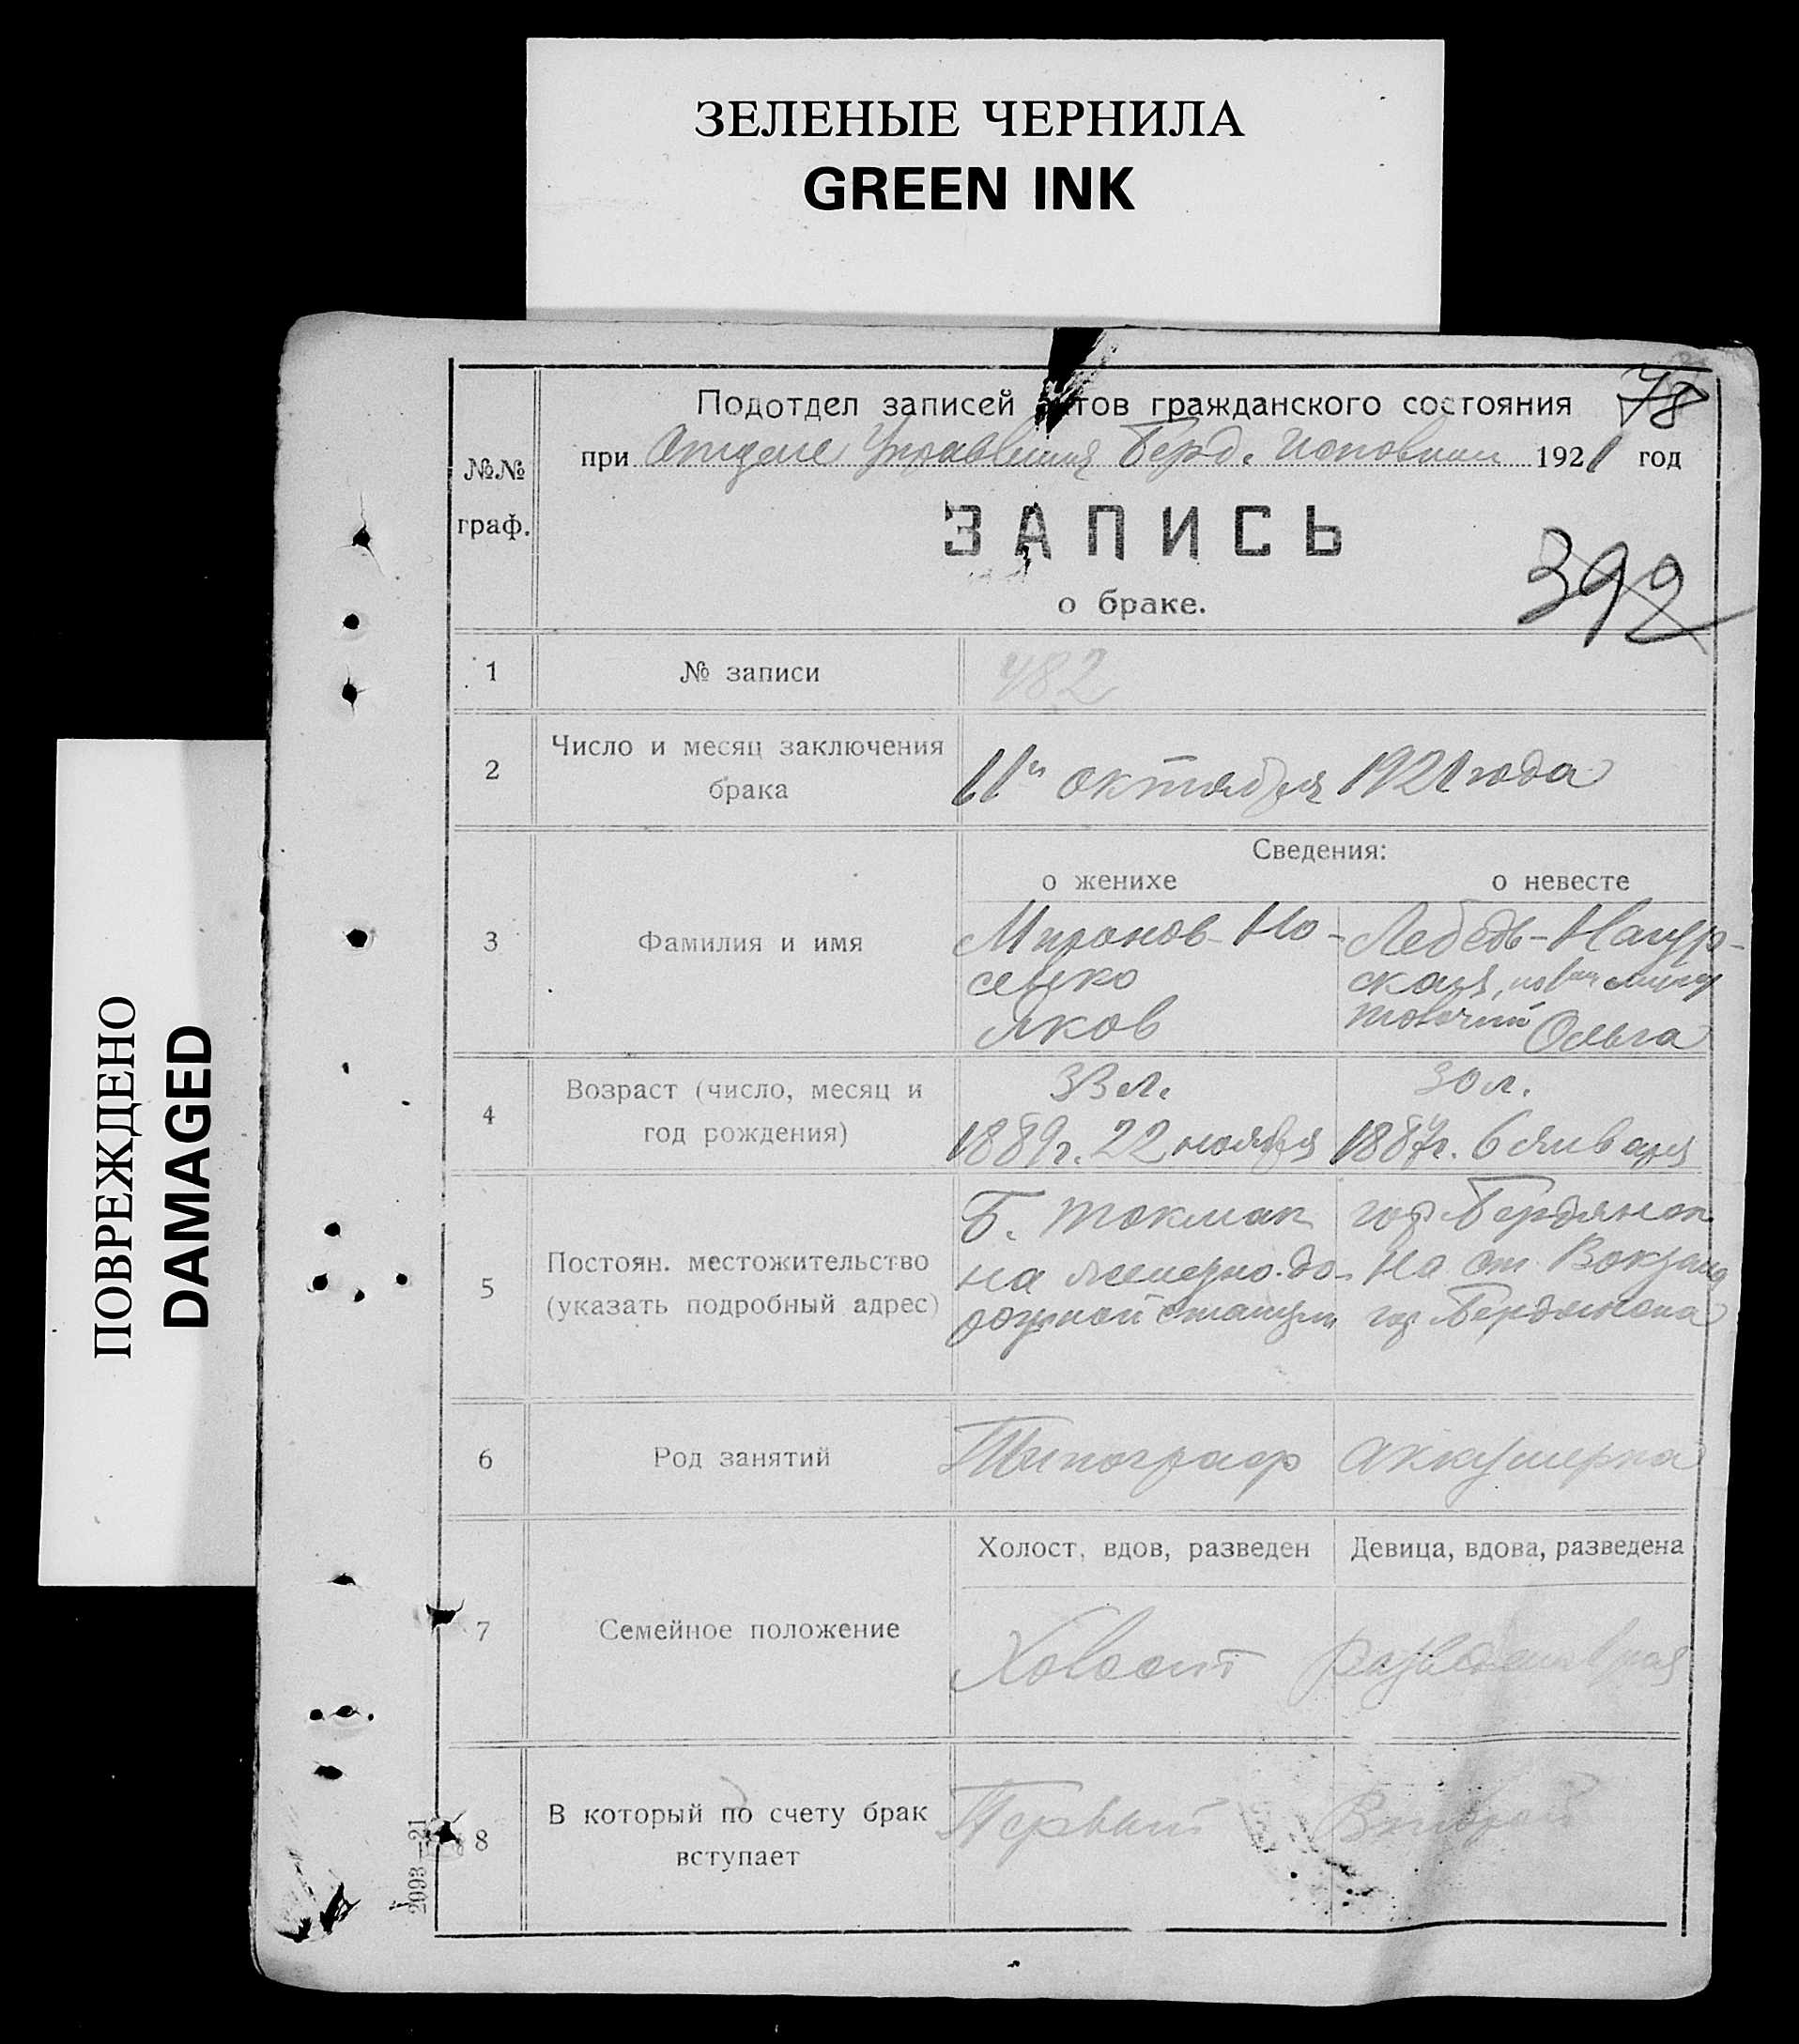 ЗЕЛЕНЫЕ ЧЕРНИЛА
GREEN INK
ПОВРЕЖДЕНО
DAMAGED
78
Подотдел записей актов гражданского состояния
при Отделе Управления Берд. Исполкома 1921 год
№№
граф.
ЗАПИСЬ
о браке.
392
1 № записи 482
2 Число и месяц заключения
брака
11го октября 1921 года
Сведения:
о женихе о невесте
3 Фамилия и имя
Миронов-Но-
сенко
Яков
Лебедь-Нагур-
ская, по
Ольга
4 Возраст (число, месяц и
год рождения)
33 л.
1889 г. 22 ноября
30 л.
1887 г. 6 января
5 Постоян. местожительство
(указать подробный адрес)
Б. Токмак
на железно-до-
рожной станции
гор. Бердянск
на ст. Вокзала
гор. Бердянска
6 Род занятий Типограф Аккушерка
Холост, вдов, разведен Девица, вдова, разведена
7 Семейное положение Холост
8 В который по счету брак
вступает
Первый Второй
2093—21